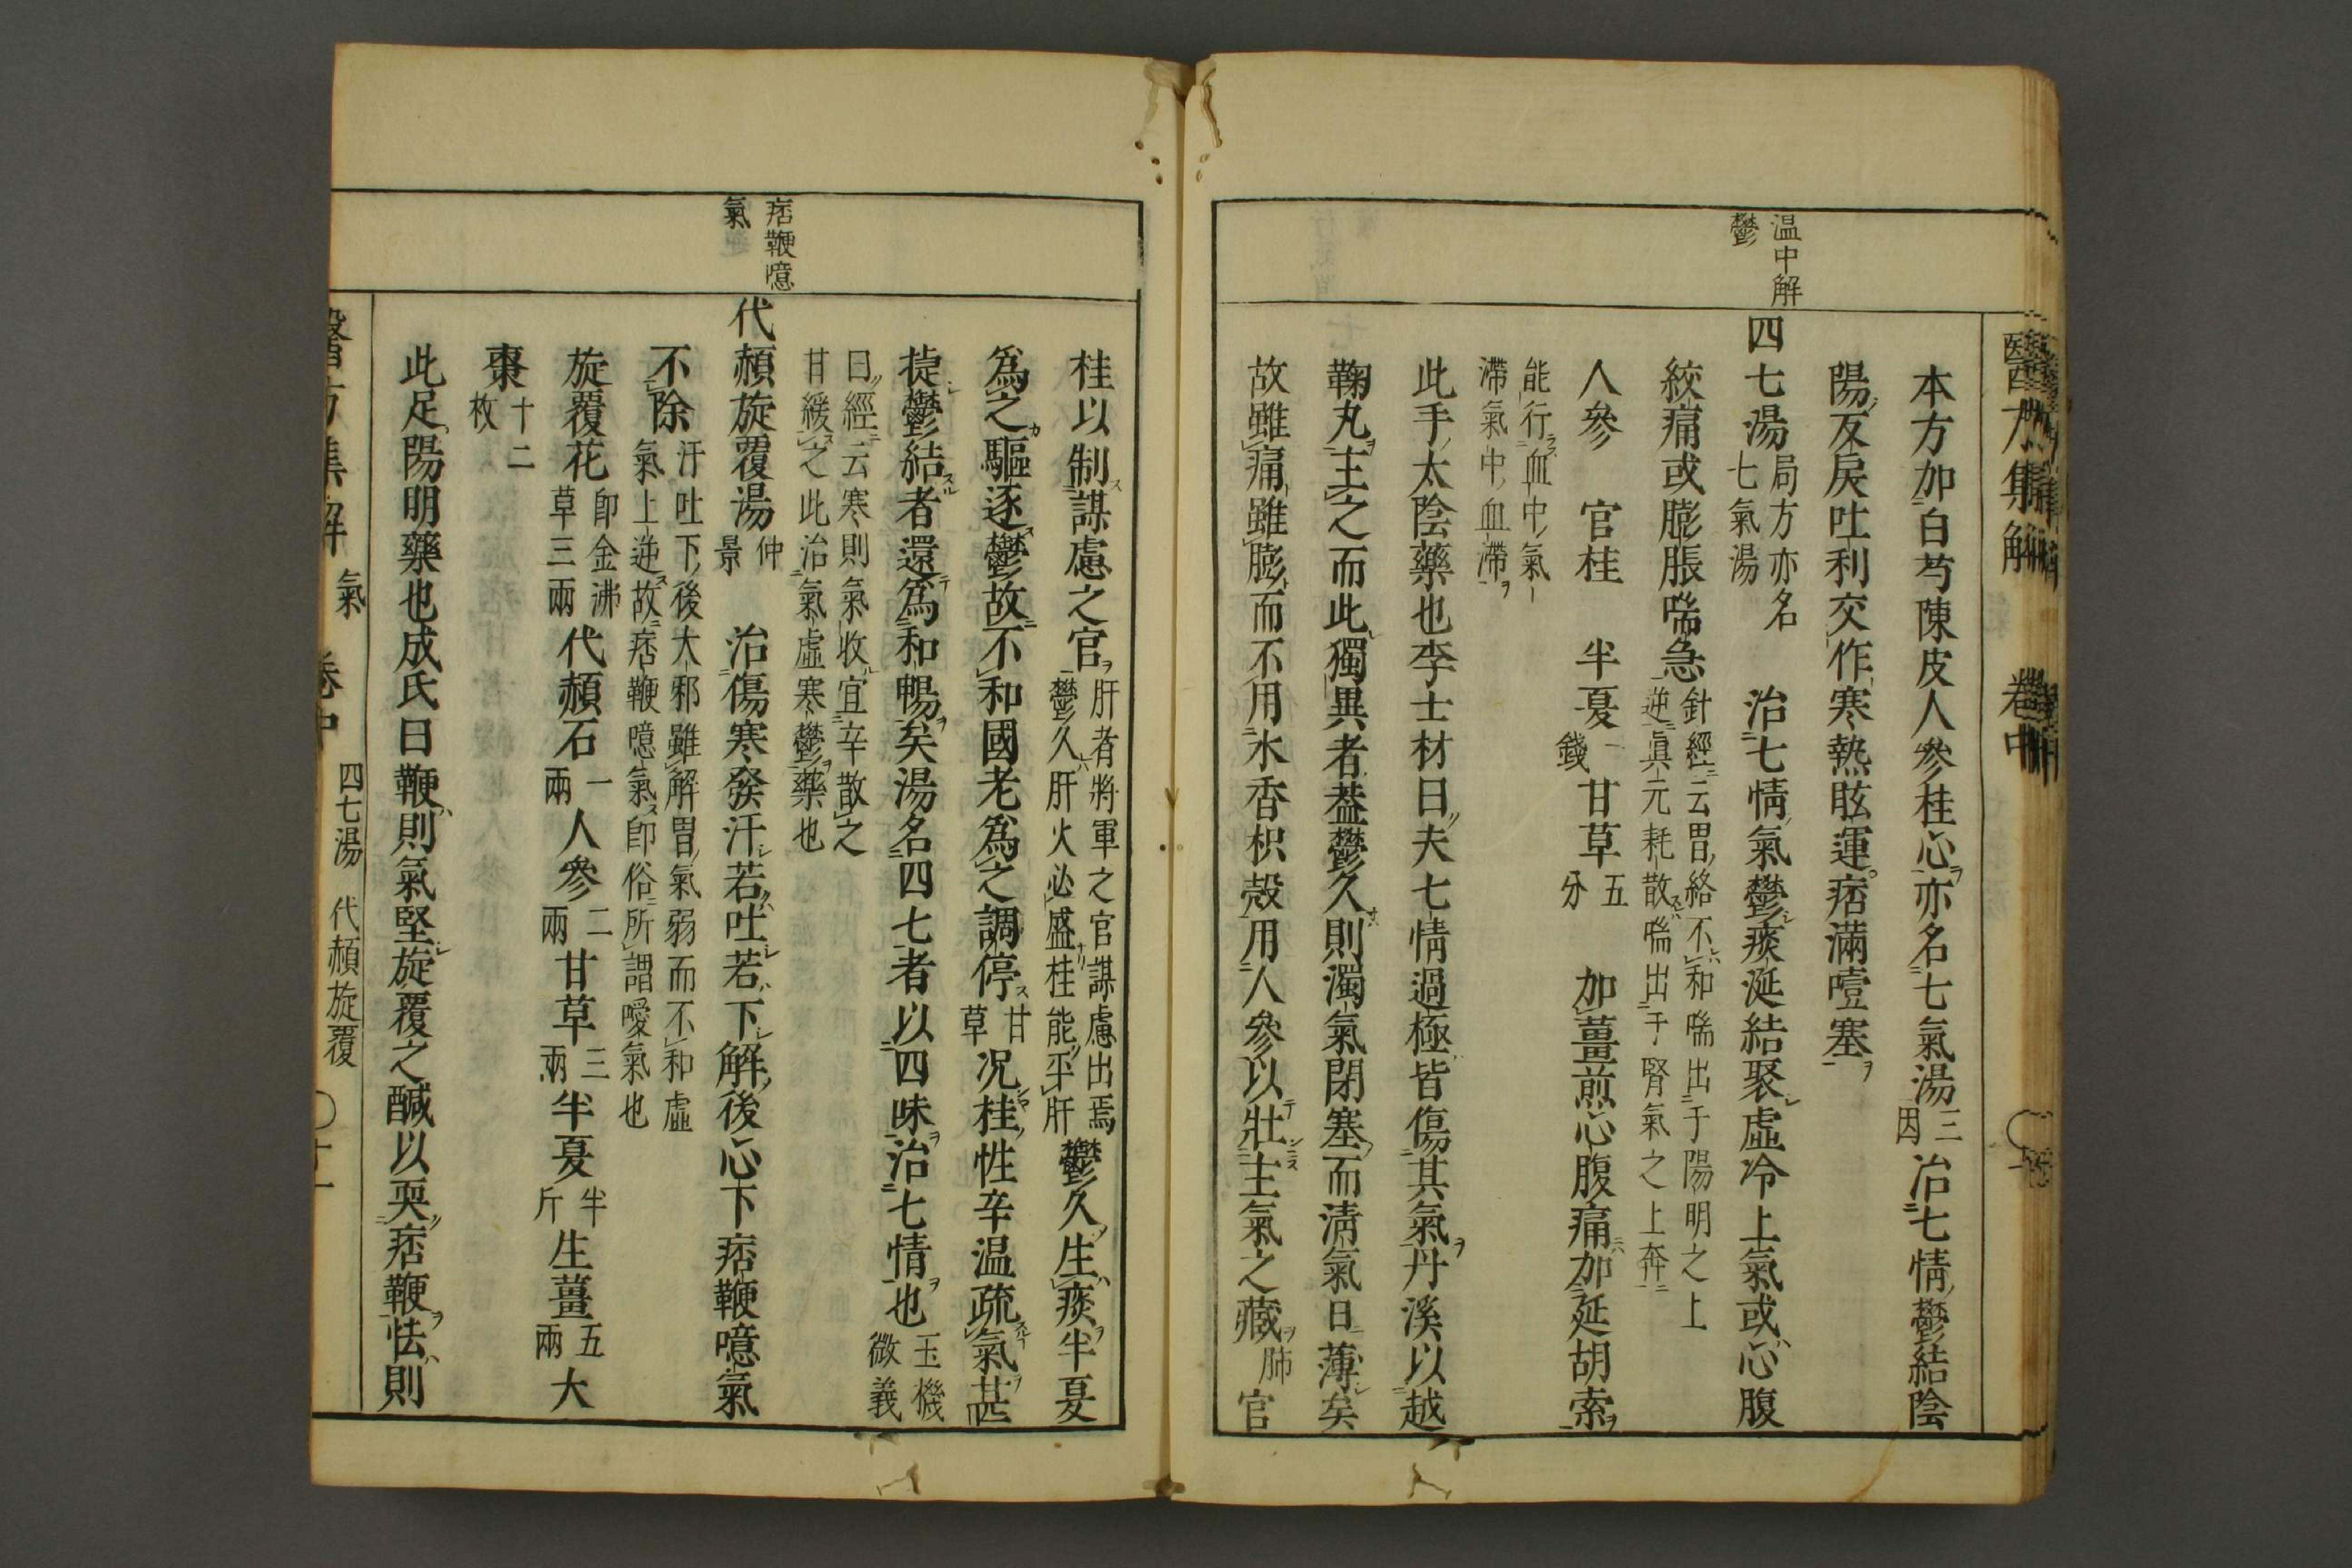 温中解
鬱
本方加白芍陳皮人參桂心亦名七氣湯三因治七情鬱結陰
陽反戾吐利交作寒熱眩運痞滿噎塞
四七湯局方亦名七氣湯 治七情氣鬱痰涎結聚虛冷上氣或心腹
絞痛或膨脹喘急針經云胃絡不和喘出于陽明之上逆眞元耗散喘出于腎氣之上奔
人參 官桂 半夏一錢甘草五分 加薑煎心腹痛加延胡索
能行血中氣滯氣中血滯
此手太陰藥也李士材曰夫七情過極皆傷其氣丹溪以越
鞠丸主之而此獨異者葢鬱久則濁氣閉塞而清氣日薄矣
故雖痛雖膨而不用木香枳殼用人參以壯主氣之藏肺官
桂以制謀慮之官肝者將軍之官謀慮出焉鬱久肝火必盛桂能平肝鬱久生痰半夏
爲之驅逐鬱故不和國老爲之調停甘草况桂性辛温疏氣甚
捷鬱結者還爲和暢矣湯名四七者以四味治七情也玉機微義
曰經云寒則氣收宜辛散之甘緩之此治氣虛寒鬱藥也
痞鞕噫
氣
代赬旋覆湯仲景 治傷寒發汗若吐若下解後心下痞鞕噫氣
不除汗吐下後大邪雖解胃氣弱而不和虛氣上逆故痞鞕噫氣卽俗所謂噯氣也
旋覆花卽金沸草三兩代赬石一兩人參二兩甘草三兩半夏半斤生薑五兩大
棗十二枚
此足陽明藥也成氏曰鞕則氣堅旋覆之鹹以耎痞鞕怯則
醫方集解 氣 卷中 四七湯 代赬旋覆 〇十一